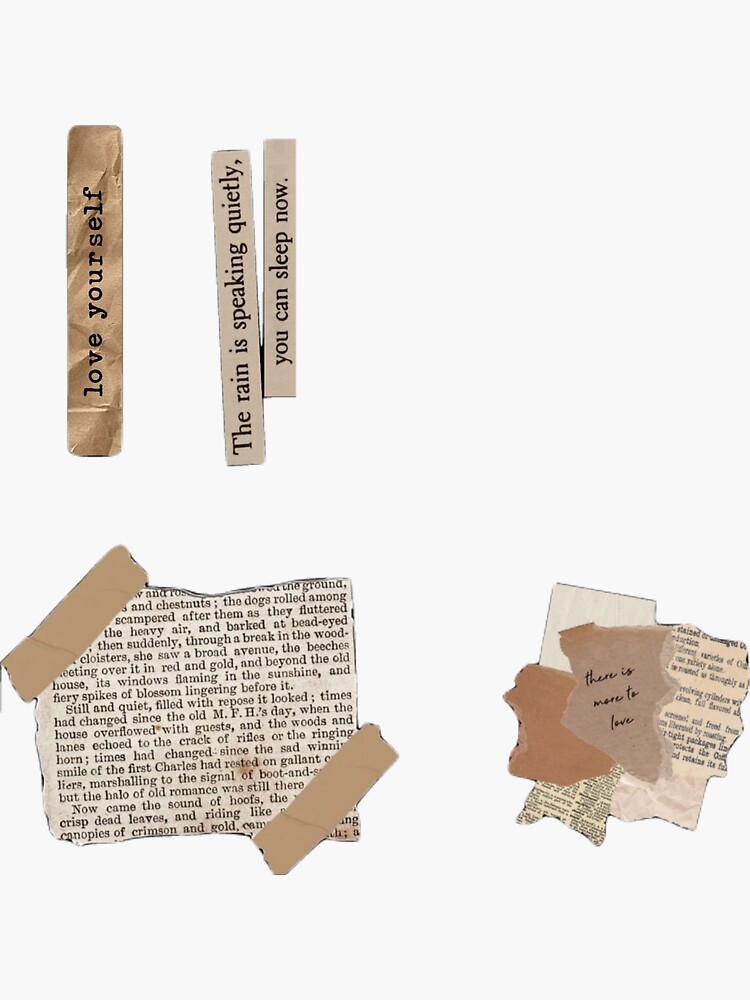 love yourself
The rain is speaking quietly,
you can sleep now.
the ground,
and chestnuts; the dogs rolled among
scampered after them as they fluttered
the heavy air, and barked at bead-eyed
then suddenly, through a break in the wood-
cloisters, she saw a broad avenue, the beeches
meeting over it in red and gold, and beyond the old
house, its windows flaming in the sunshine, and
fiery spikes of blossom lingering before it.
Still and quiet, filled with repose it looked; times
had changed since the old M. F. H.'s day, when the
house overflowed with guests, and the woods and
lanes echoed to the crack of rifles or the ringing
horn; times had changed since the sad winning
smile of the first Charles had rested on gallant
liers, marshalling to the signal of boot-and-
but the halo of old romance was still there
Now came the sound of hoofs, the
crisp dead leaves, and riding like
canopies of crimson and gold, a
there is
more to
love
stained or
different varieties of
one variety alone.
is roasted as thoroughly as
revolving cylinders
clean, full flavored
screened and freed from
liberated by roasting.
tight packages
protects the
and retains its